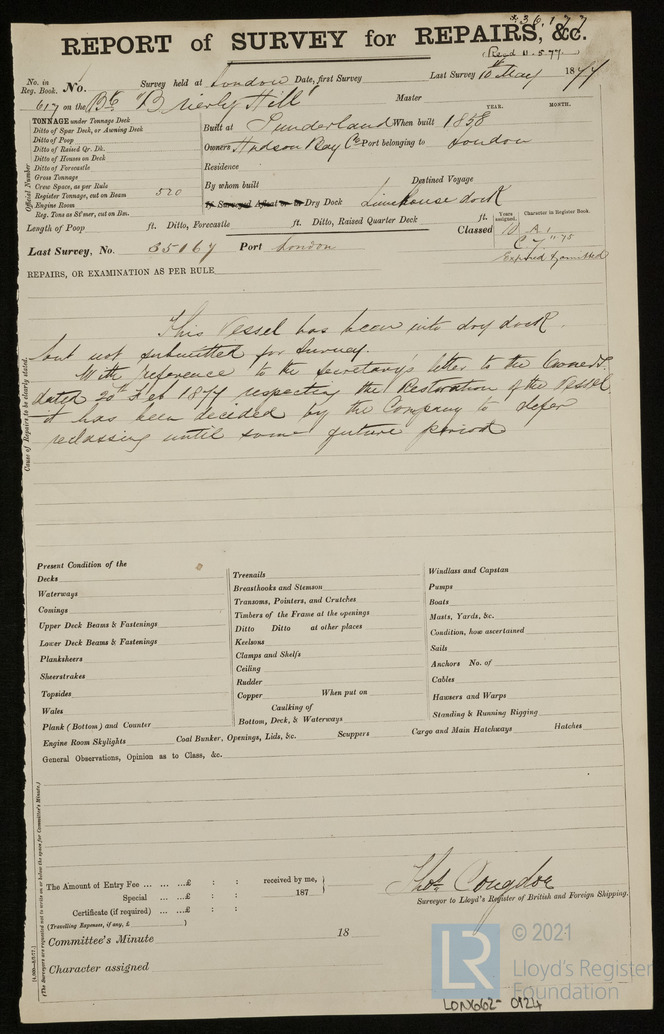 36,177
REPORT of SURVEY for REPAIRS, &c.
Recd 11.5.77
No. in Reg. Book. No. Survey held at London Date, first Survey Last Survey 10th May 1877
617 on the Bk "Brierly Hill" Master
YEAR. MONTH.
TONNAGE under Tonnage Deck
Ditto of Spar Deck, or Awning Deck
Ditto of Poop
Ditto of Raised Qr. Dk.
Ditto of Houses on Deck
Ditto of Forecastle
Gross Tonnage
Crew Space, as per Rule
Register Tonnage, cut on Beam 520
Engine Room
Reg. Tons as St'mer, cut on Bm.
Official Number
Built at Sunderland When built 1858
Owners Hudson Bay Co Port belonging to London
Residence
By whom built Destined Voyage
If Surveyed Afloat or in Dry Dock Limehouse dock
Length of Poop ft. Ditto, Forecastle ft. Ditto, Raised Quarter Deck ft.
Classed Years assigned. Character in Register Book.
A 1
"75
Expired & omitted
Last Survey, No. 35167 Port London
REPAIRS, OR EXAMINATION AS PER RULE
Cause of Repairs to be clearly stated.
This Vessel has been into dry dock,
but not submitted for Survey.
With reference to the Secretary's letter to the Owners
dated 20th Feb 1877 respecting the Restoration of the Vessel
it has been decided by the Company to defer
reclassing until some future period
Present Condition of the
Decks
Waterways
Comings
Upper Deck Beams & Fastenings
Lower Deck Beams & Fastenings
Planksheers
Sheerstrakes
Topsides
Wales
Plank (Bottom) and Counter
Engine Room Skylights
Treenails
Breasthooks and Stemson
Transoms, Pointers, and Crutches
Timbers of the Frame at the openings
Ditto Ditto at other places
Keelsons
Clamps and Shelfs
Ceiling
Rudder
Copper When put on
Caulking of
Bottom, Deck, & Waterways
Coal Bunker, Openings, Lids, &c. Scuppers
Windlass and Capstan
Pumps
Boats
Masts, Yards, &c.
Condition, how ascertained
Sails
Anchors No. of
Cables
Hawsers and Warps
Standing & Running Rigging
Cargo and Main Hatchways Hatches
General Observations, Opinion as to Class, &c.
(The Surveyors are requested not to write on or below the space for Committee's Minute.)
The Amount of Entry Fee ... ... ...£ : : received by me,
Special ... ...£ : : 187
Certificate (if required) ... ...£ : :
(Travelling Expenses, if any, £ )
Thos. Congdon
Surveyor to Lloyd's Register of British and Foreign Shipping.
Committee's Minute 18
Character assigned
LR
© 2021
Lloyd's Register
Foundation
LON662-0124